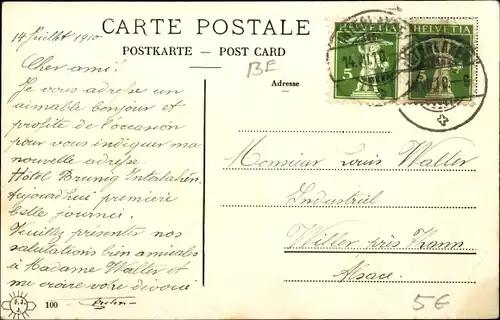 CARTE POSTALE
POSTKARTE - POST CARD
Adresse
14 Juillet 1910
Cher ami!
Je vous adresse un
aimable bonjour et
profite de l'occasion
pour vous indiquer ma
nouvelle adresse
Hôtel Brunig Interlaken.
Aujourd'hui première
belle journée.
Veuillez présenter nos
salutations bien amicales
à Madame Walter et
me croire votre
HELVETIA
5
HELVETIA
5
BE
Monsieur Louis Walter
Industriel
Willer près Thann
Alsace.
100
5€